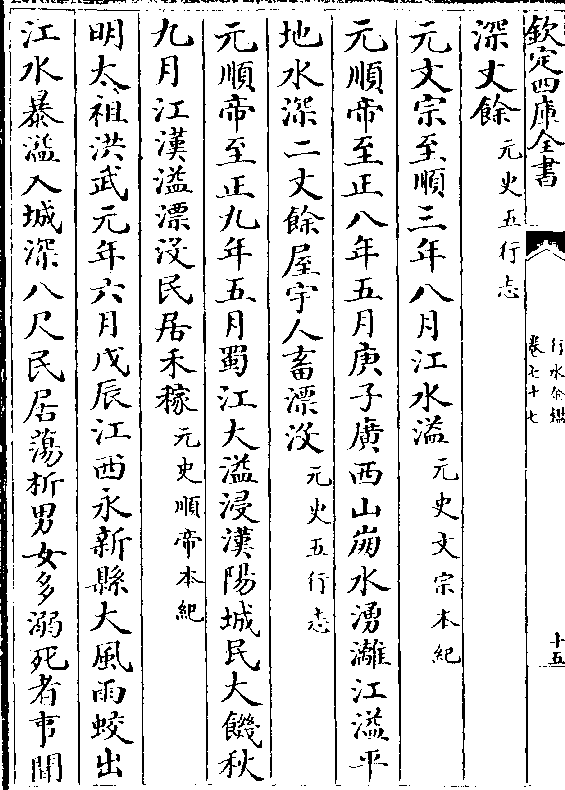 欽定四庫全書
行水金鑑
卷七十七
十五
深丈餘元史五行志
元文宗至順三年八月江水溢元史文宗本紀
元順帝至正八年五月庚子廣西山崩水湧灕江溢平
地水深二丈餘屋宇人畜漂沒元史五行志
元順帝至正九年五月蜀江大溢浸漢陽城民大饑秋
九月江漢溢漂沒民居禾稼元史順帝本紀
明太祖洪武元年六月戊辰江西永新縣大風雨蛟出
江水暴溢入城深八尺民居蕩析男女多溺死者事聞